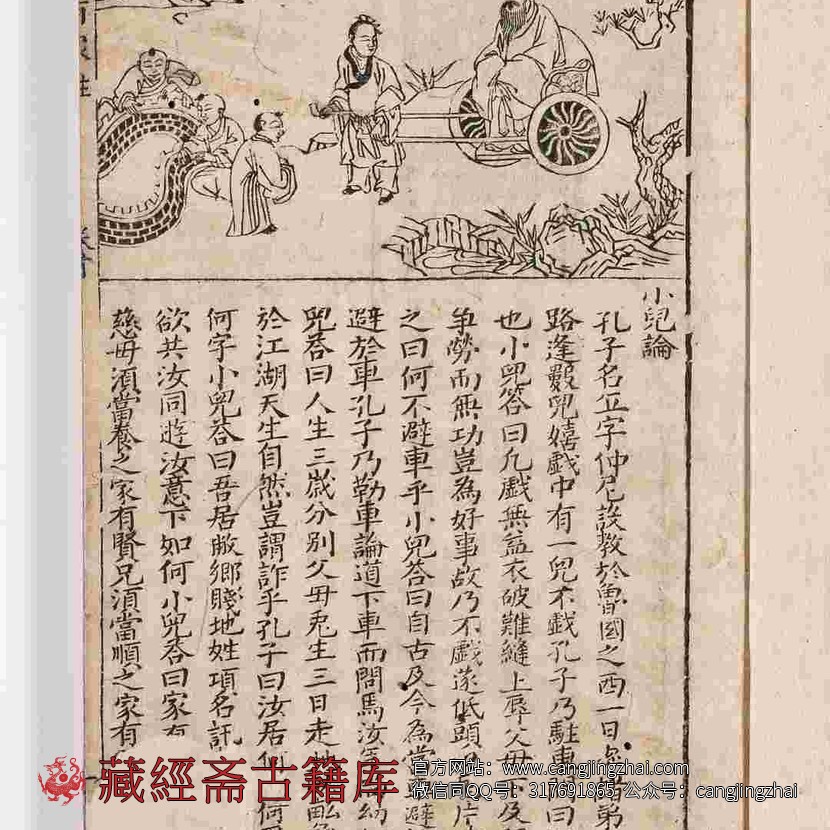 小兒論
孔子名丘字仲尼設教於魯國之西一日
路逢數兒嬉戲中有一兒不戲孔子乃駐車
也小兒答曰凡戲無益衣破難縫上辱父母
争勞而無功豈為好事故乃不戲遂低頭
之曰何不避車乎小兒答曰自古及今為當
避於車孔子乃勒車論道下車而問焉汝
兒答曰人生三歲分别父母兎生三日走
於江湖天生自然豈謂詐乎孔子曰汝居何
何字小兒答曰吾居敝鄉賤地姓項名託
欲共汝同遊汝意下如何小兒答曰家有
慈母湏當養之家有賢兄湏當順之家有
藏經斋古籍库
官方网站：www.cangjingzhai.com
微信同QQ号：317691865 公众号：cangjingzhai